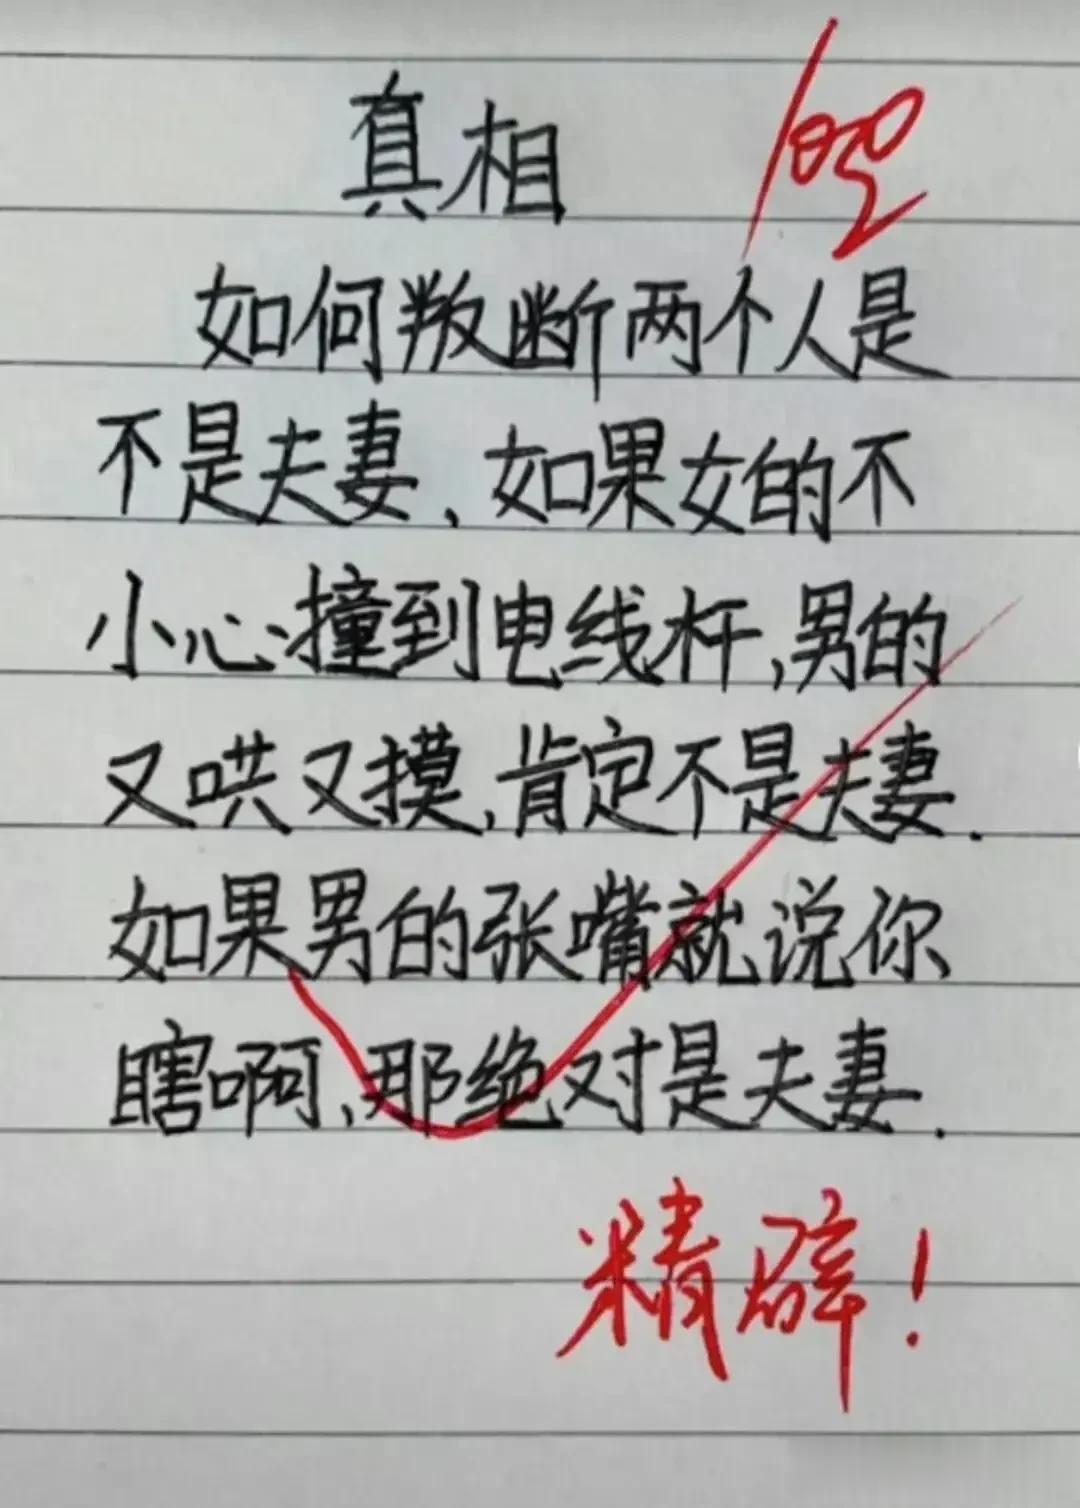 真相
100
如何叛断两个人是
不是夫妻、如果女的不
小心撞到电线杆,男的
又哄又摸,肯定不是夫妻.
如果男的张嘴就说你
瞎啊,那绝对是夫妻.
精辟!